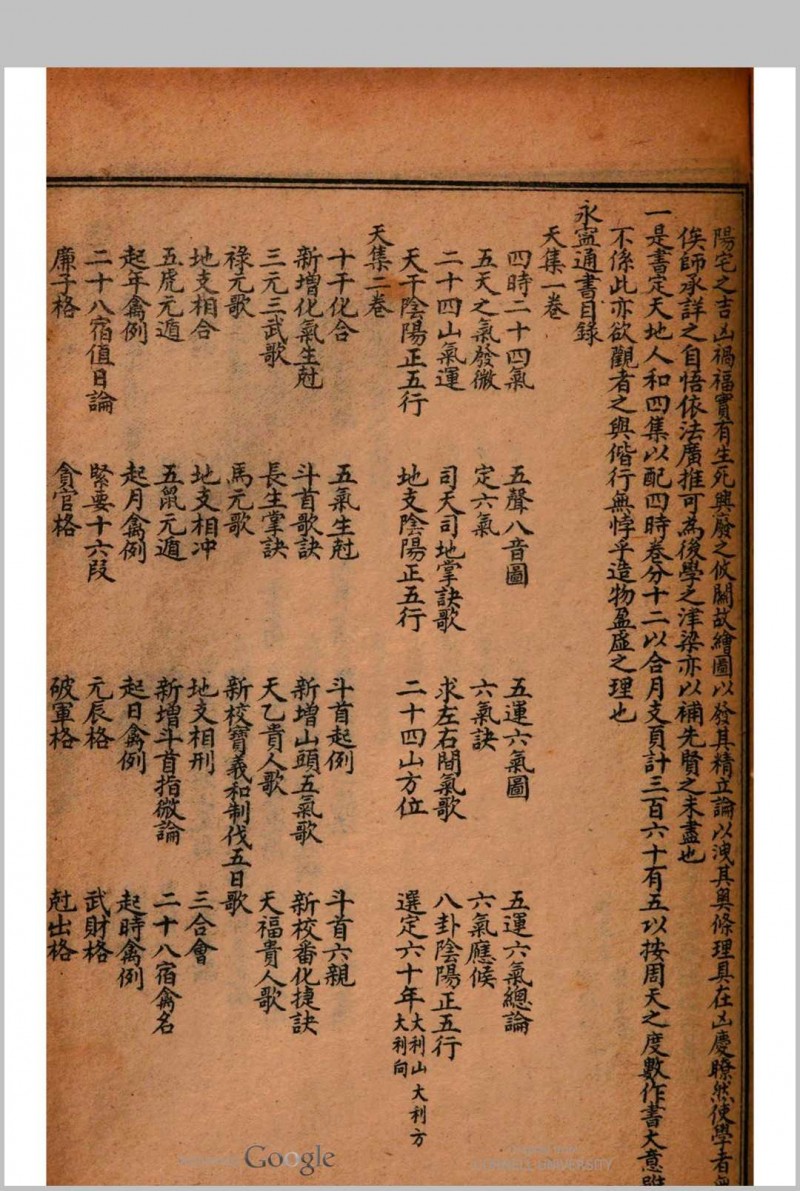 陽宅之吉凶禍福實有生死興廢之攸關故繪圖以發其精立論以洩其奧條理具在凶慶瞭然使學者
俟師承詳之自悟依法廣推可為後學之津梁亦以補先賢之未盡也
一是書定天地人和四集以配四時卷分十二以合月支頁計三百六十有五以按周天之度數作書大意
不係此亦欲觀者之與偕行無悖乎造物盈虛之理也
永寍通書目錄
天集一卷
四時二十四氣 五聲八音圖 五運六氣圖 五運六氣總論
五天之氣發微 定六氣 六氣訣 六氣應候
二十四山氣運 司天司地掌訣歌 求左右間氣歌 八卦陰陽正五行
天干陰陽正五行 地支陰陽正五行 二十四山方位 選定六十年大利山大利向大利方
天集二卷
十干化合 五氣生尅 斗首起例 斗首六親
新增化氣生尅 斗首歌訣 新增山頭五氣歌 新校番化捷訣
三元三武歌 長生掌訣 天乙貴人歌 天福貴人歌
祿元歌 馬元歌 新校寶義和制伐五日歌
地支相合 地支相冲 地支相刑 三合會
五虎元遁 五鼠元遁 新增斗首指微論 二十八宿禽名
起年禽例 起月禽例 起日禽例 起時禽例
二十八宿值日論 緊要十六段 元辰格 武財格
廉子格 貪官格 破軍格 尅出格
Google
CORNELL UNIVERSITY